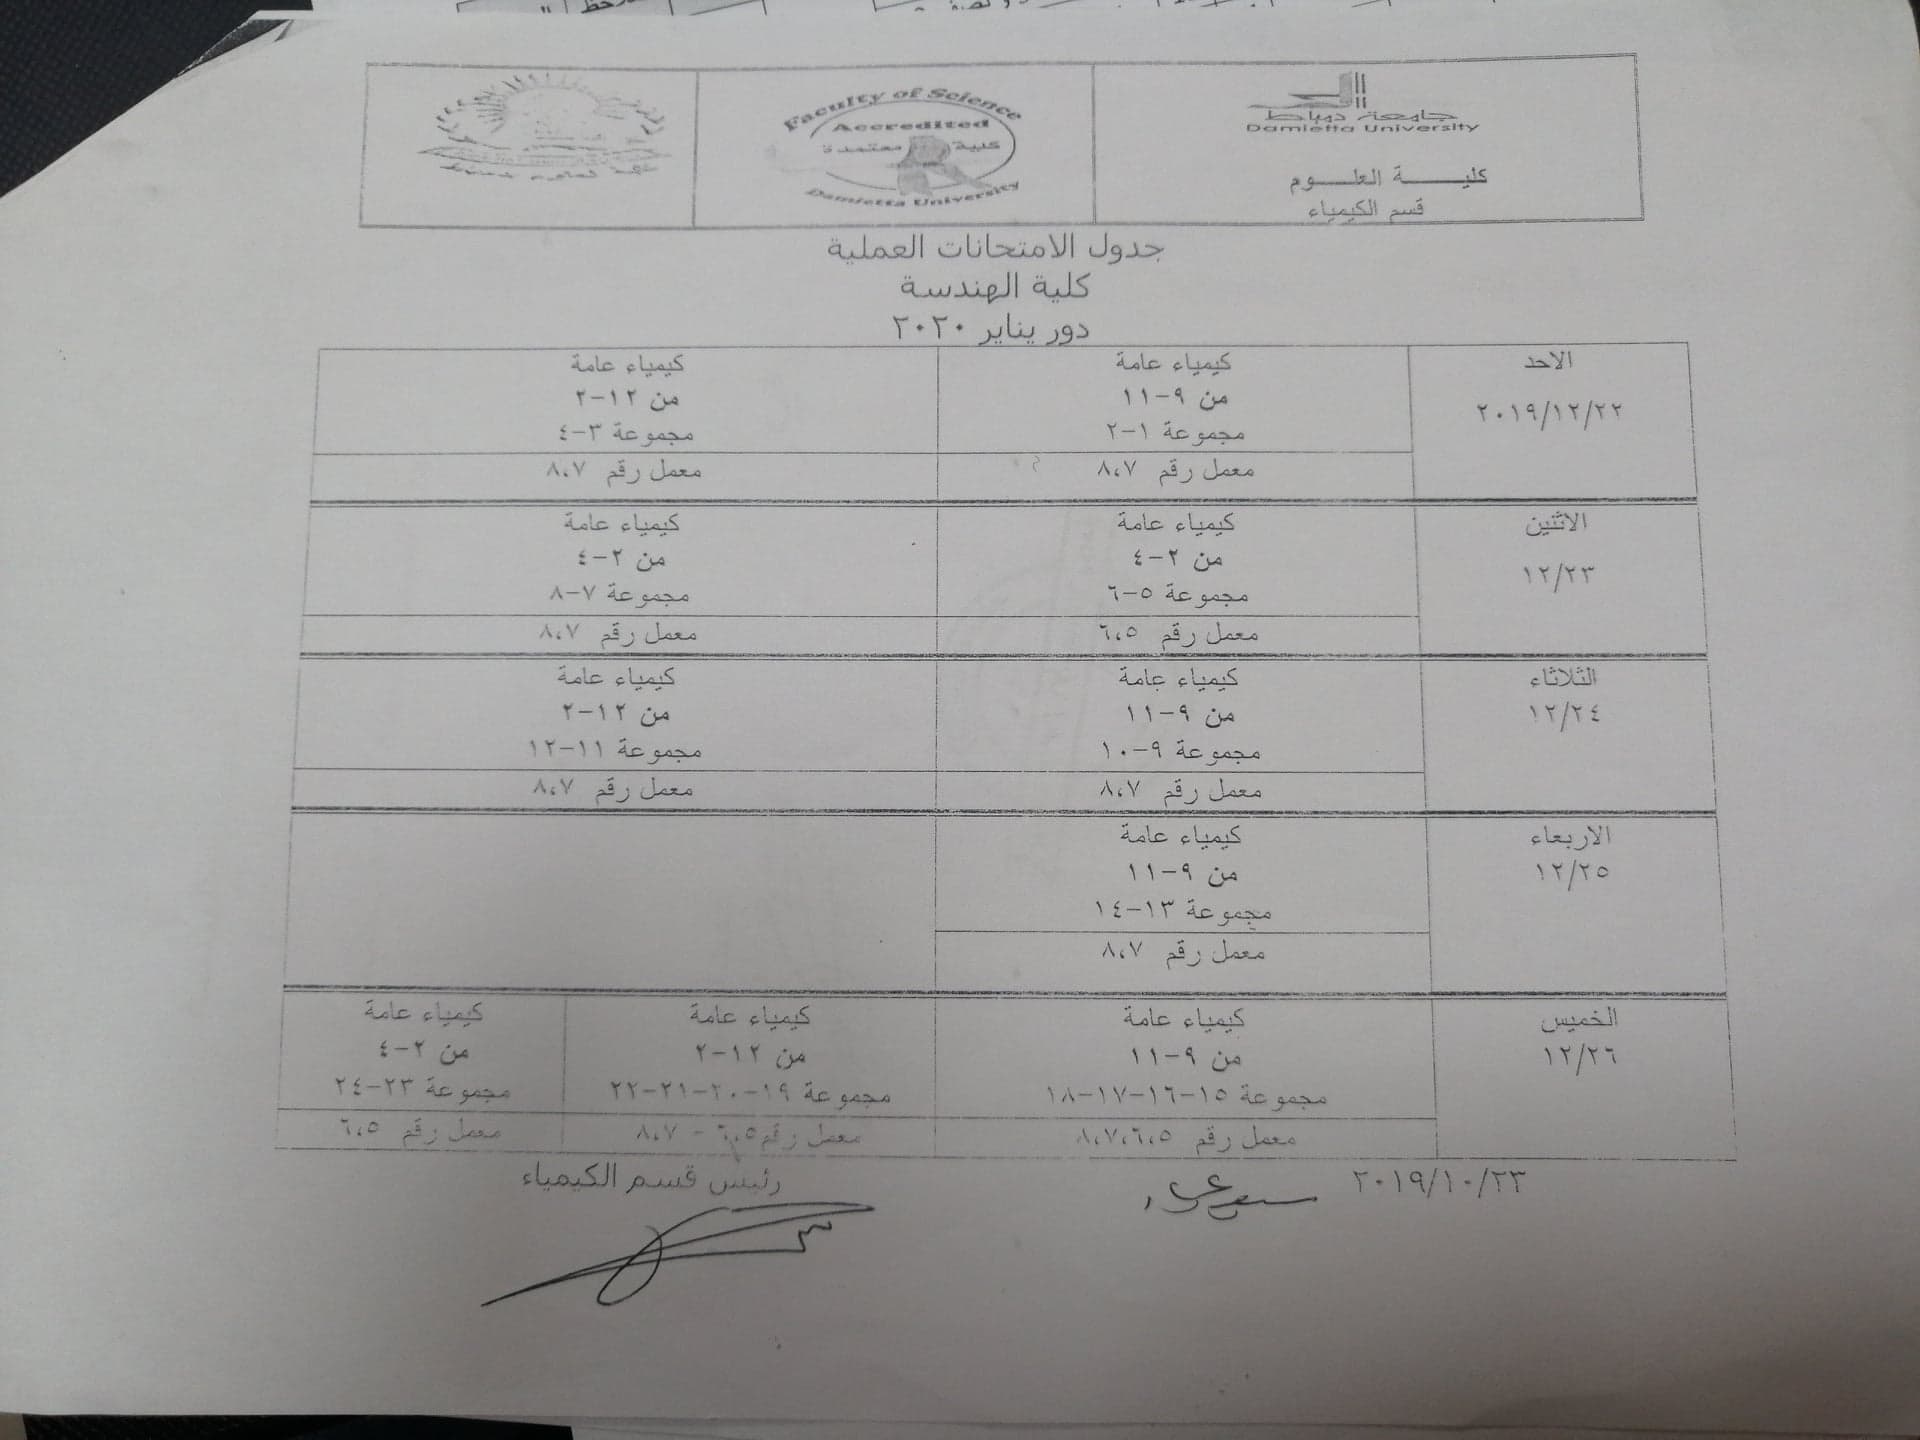 جامعة دمياط
Damietta University
كليـــة العلـــوم
قسم الكيمياء
Faculty of Science
Accredited
كلية معتمدة
Damietta University
جدول الامتحانات العملية
كلية الهندسة
دور يناير ٢٠٢٠
الاحد
٢٠١٩/١٢/٢٢
كيمياء عامة
من ٩-١١
مجموعة ١-٢
معمل رقم ٨،٧
كيمياء عامة
من ١٢-٢
مجموعة ٣-٤
معمل رقم ٨،٧
الاثنين
١٢/٢٣
كيمياء عامة
من ٢-٤
مجموعة ٥-٦
معمل رقم ٦،٥
كيمياء عامة
من ٢-٤
مجموعة ٧-٨
معمل رقم ٨،٧
الثلاثاء
١٢/٢٤
كيمياء عامة
من ٩-١١
مجموعة ٩-١٠
معمل رقم ٨،٧
كيمياء عامة
من ١٢-٢
مجموعة ١١-١٢
معمل رقم ٨،٧
الاربعاء
١٢/٢٥
كيمياء عامة
من ٩-١١
مجموعة ١٣-١٤
معمل رقم ٨،٧
الخميس
١٢/٢٦
كيمياء عامة
من ٩-١١
مجموعة ١٥-١٦-١٧-١٨
معمل رقم ٨،٧،٦،٥
كيمياء عامة
من ١٢-٢
مجموعة ١٩-٢٠-٢١-٢٢
معمل رقم ٦،٥ - ٨،٧
كيمياء عامة
من ٢-٤
مجموعة ٢٣-٢٤
معمل رقم ٦،٥
٢٠١٩/١٠/٢٣
رئيس قسم الكيمياء